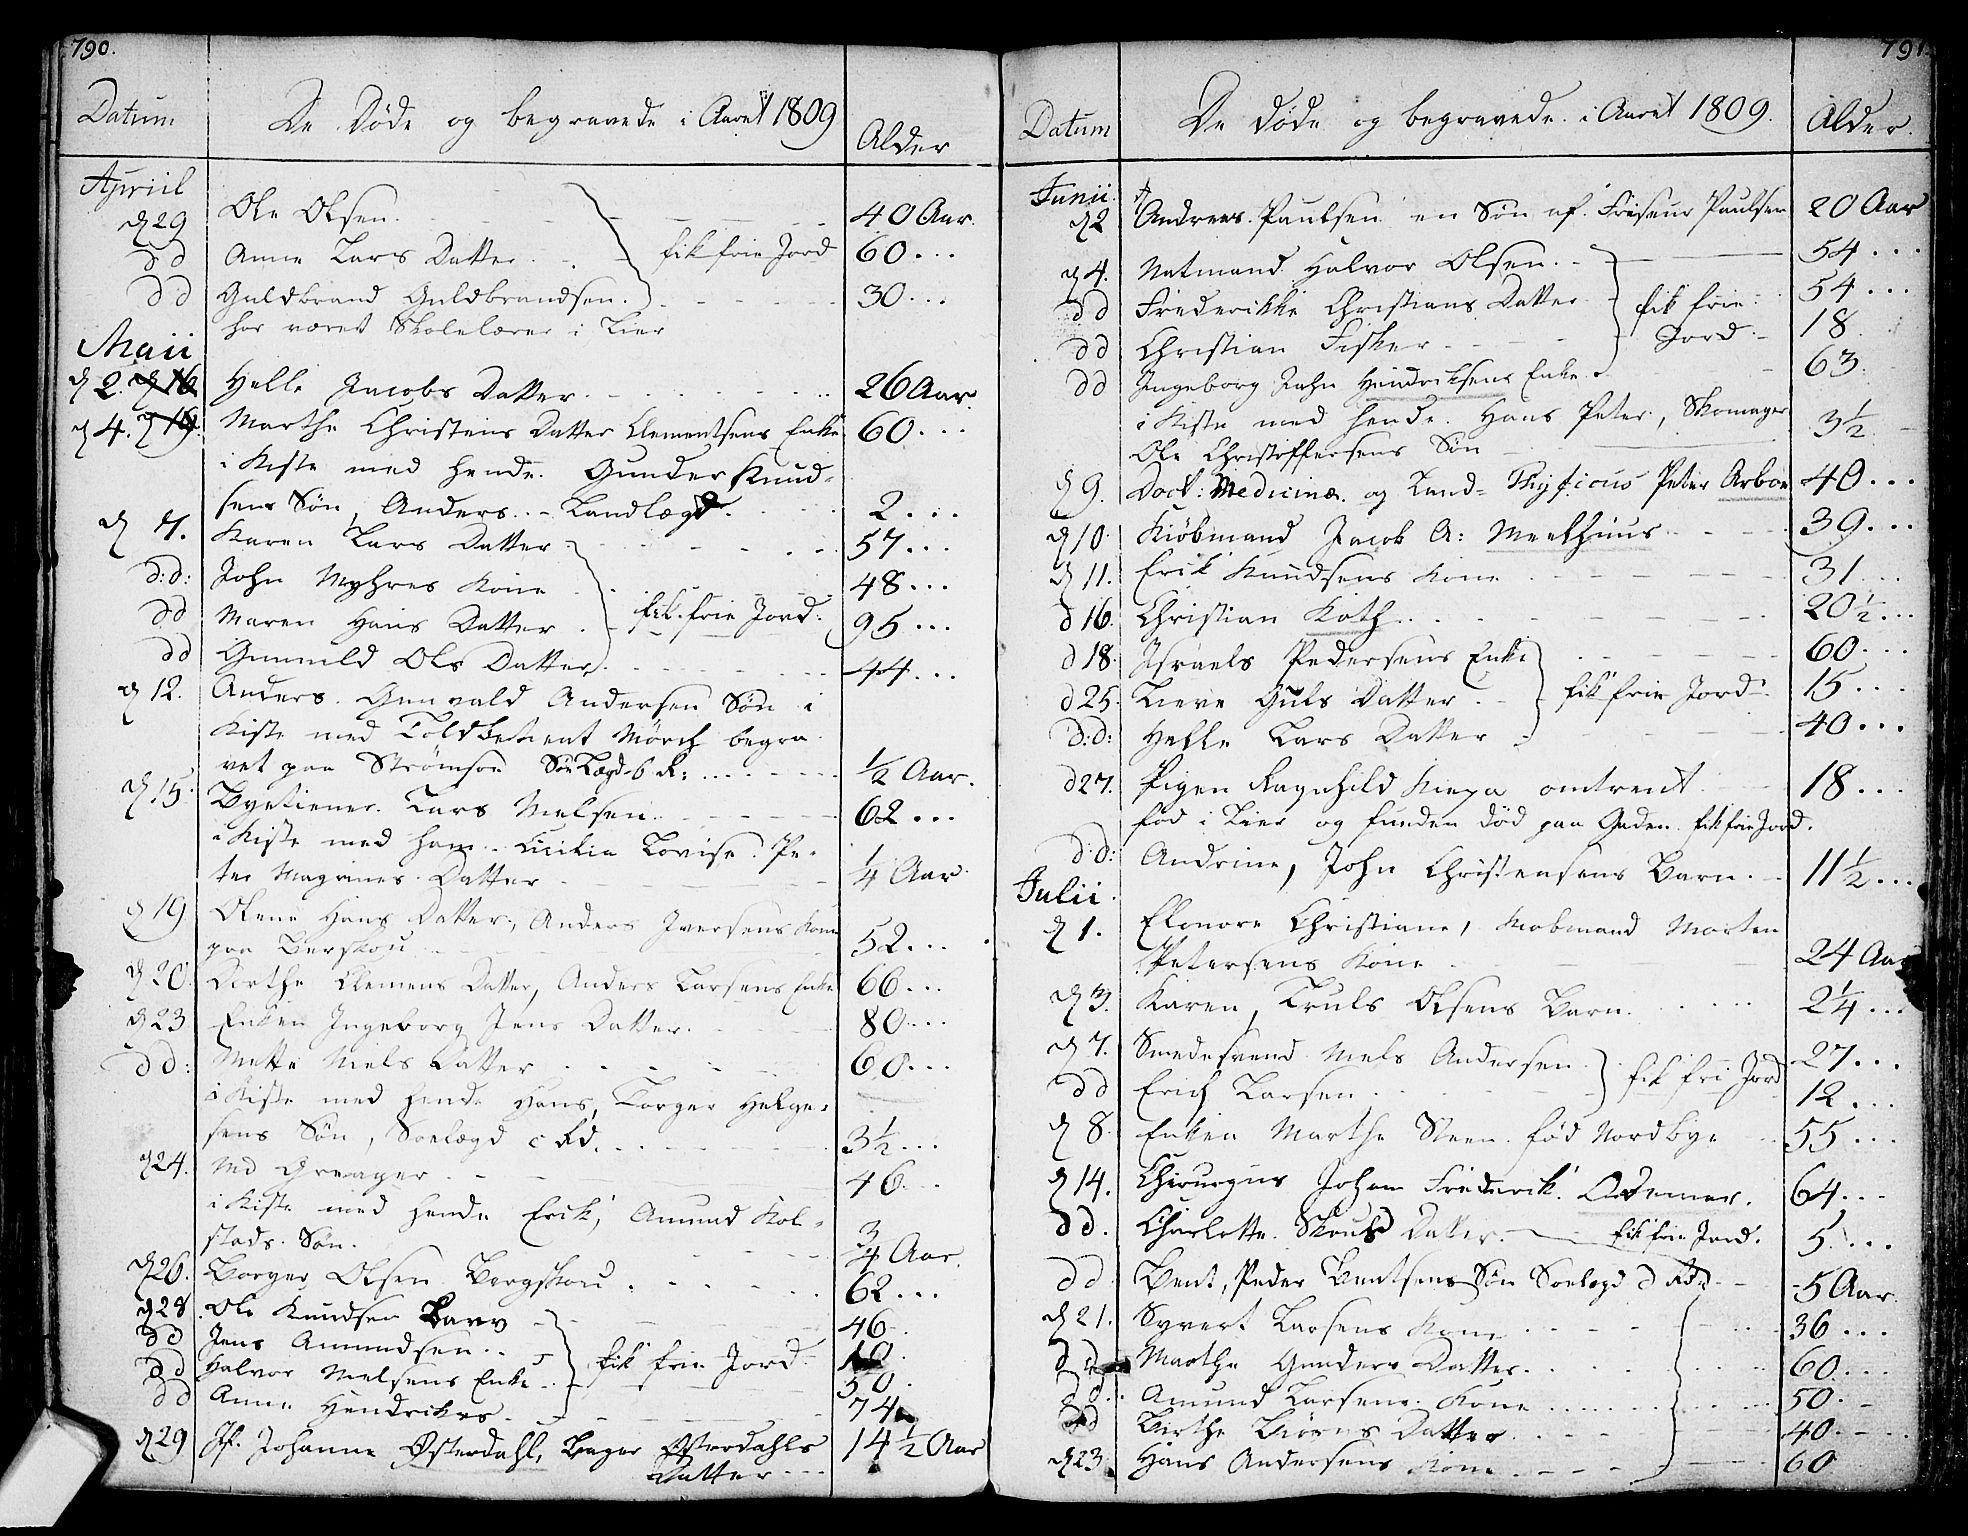 790.
Datum De Døde og begravede i Aaret 1809 Alder
Apriil
d 29 Ole Olsen. 40 Aar.
dd Anne Lars Datter. fik frie Jord 60...
dd Guldbrand Guldbrandsen. 30...
har været Skolelærer i Lier
Maii
d 2. Helle Jacobs Datter. 26 Aar
d 4. Marthe Christens Datter Clementsens Enke 60...
i Kiste med hende. Gunder Knud-
sens Søn, Anders. - Landlægd. 2...
d 7. Karen Lars Datter 57...
d:d: John Myhres Kone 48...
dd Maren Hans Datter fik frie Jord. 95...
dd Gunnild Ols Datter 44...
d 12. Anders. Gunvald Andersen Søn i
Kiste med Toldbetient Mørch begra-
vet paa Strømsøe Søe Lægd 6 R: 1/2 Aar.
d 15. Byetiener. Lars Nielsen. 62...
i Kiste med ham - Cicilia Lovise. Pe-
ter Magnines Datter 1/4 Aar
d 19 Olene Hans Datter, Anders Iversens Kone
paa Berskou 52...
d 20. Dorthe Clemens Datter, Anders Larsens Enke 66...
d 23 Enken Ingeborg Jens Datter. 80...
dd: Mette Niels Datter 60...
i Kiste med hende Hans, Torger Helge-
sens Søn, Soelægd c Rd. 3 1/2...
d 24. Md Greager 46...
i Kiste med hende Erik, Amund Kol-
stads. Søn. 3/4 Aar.
d 26. Borger Olsen Bergskou 62...
d 28. Ole Knudsen Barv 46.
dd Jens Amundsen.. 10.
dd Halvor Nielsens Enke fik frie Jord. 50.
dd Anne Hendrikes 74
d 29 Jf. Johanne Østerdahl, Bager Østerdahls 14 1/2 Aar
Datter
791.
Datum De døde og begravede i Aaret 1809. Alder.
Junii.
d 2 Andreas Paulsen en Søn af Friseur Paulsen 20 Aar
d 4. Natmand Halvor Olsen. 54...
dd Frederikke Christians Datter fik frie 54...
dd Christian Fisker Jord 18
dd Ingeborg John Hendrichsens Enke 63.
i Kiste med hende. Hans Peter, Skomager
Ole Christoffersens Søn 3 1/2
d 9. Doct: Medicinæ. og Land- Physicus Peter Arboe 40...
d 10. Kiøbmand Jacob A: Meelhuus 39...
d 11. Erik Knudsens Kone 31...
d 16. Christian Koth 20 1/2...
d 18. Israels Pedersens Enke 60...
d 25. Lieve Guls Datter fik frie Jord 15...
d:d: Helle Lars Datter 40...
d 27. Pigen Ragnhild Kiepa omtrent 18...
fød i Lier og funden død paa Gaden. fik frie Jord.
d:d: Andrine, John Christensens Barn. 11 1/2...
Julii.
d 1. Elonore Christiane, Kiøbmand Morten
Petersens Kone 24 Aar
d 3. Karen, Truls Olsens Barn. 2 1/4...
d 7. Smedesvend Niels Andersen. fik fri Jord 27...
dd Erich Larsen 12...
d 8. Enken Marthe Steen. fød Nordbye 55...
d 14. Chirurgus Johan Friderik. Ademar. 64...
dd. Charlotte. Skous Datter. fik frie Jord. 5...
dd Bent, Peder Bentsens Søn Soelægd d Rd. 5 Aar
d 21. Syvert Larsens Kone 36...
dd Marthe Gunders Datter. 60...
dd Amund Larsens. Kone 50.
dd Birthe Biørns Datter 40.
d 23. Hans Andersens Kone 60